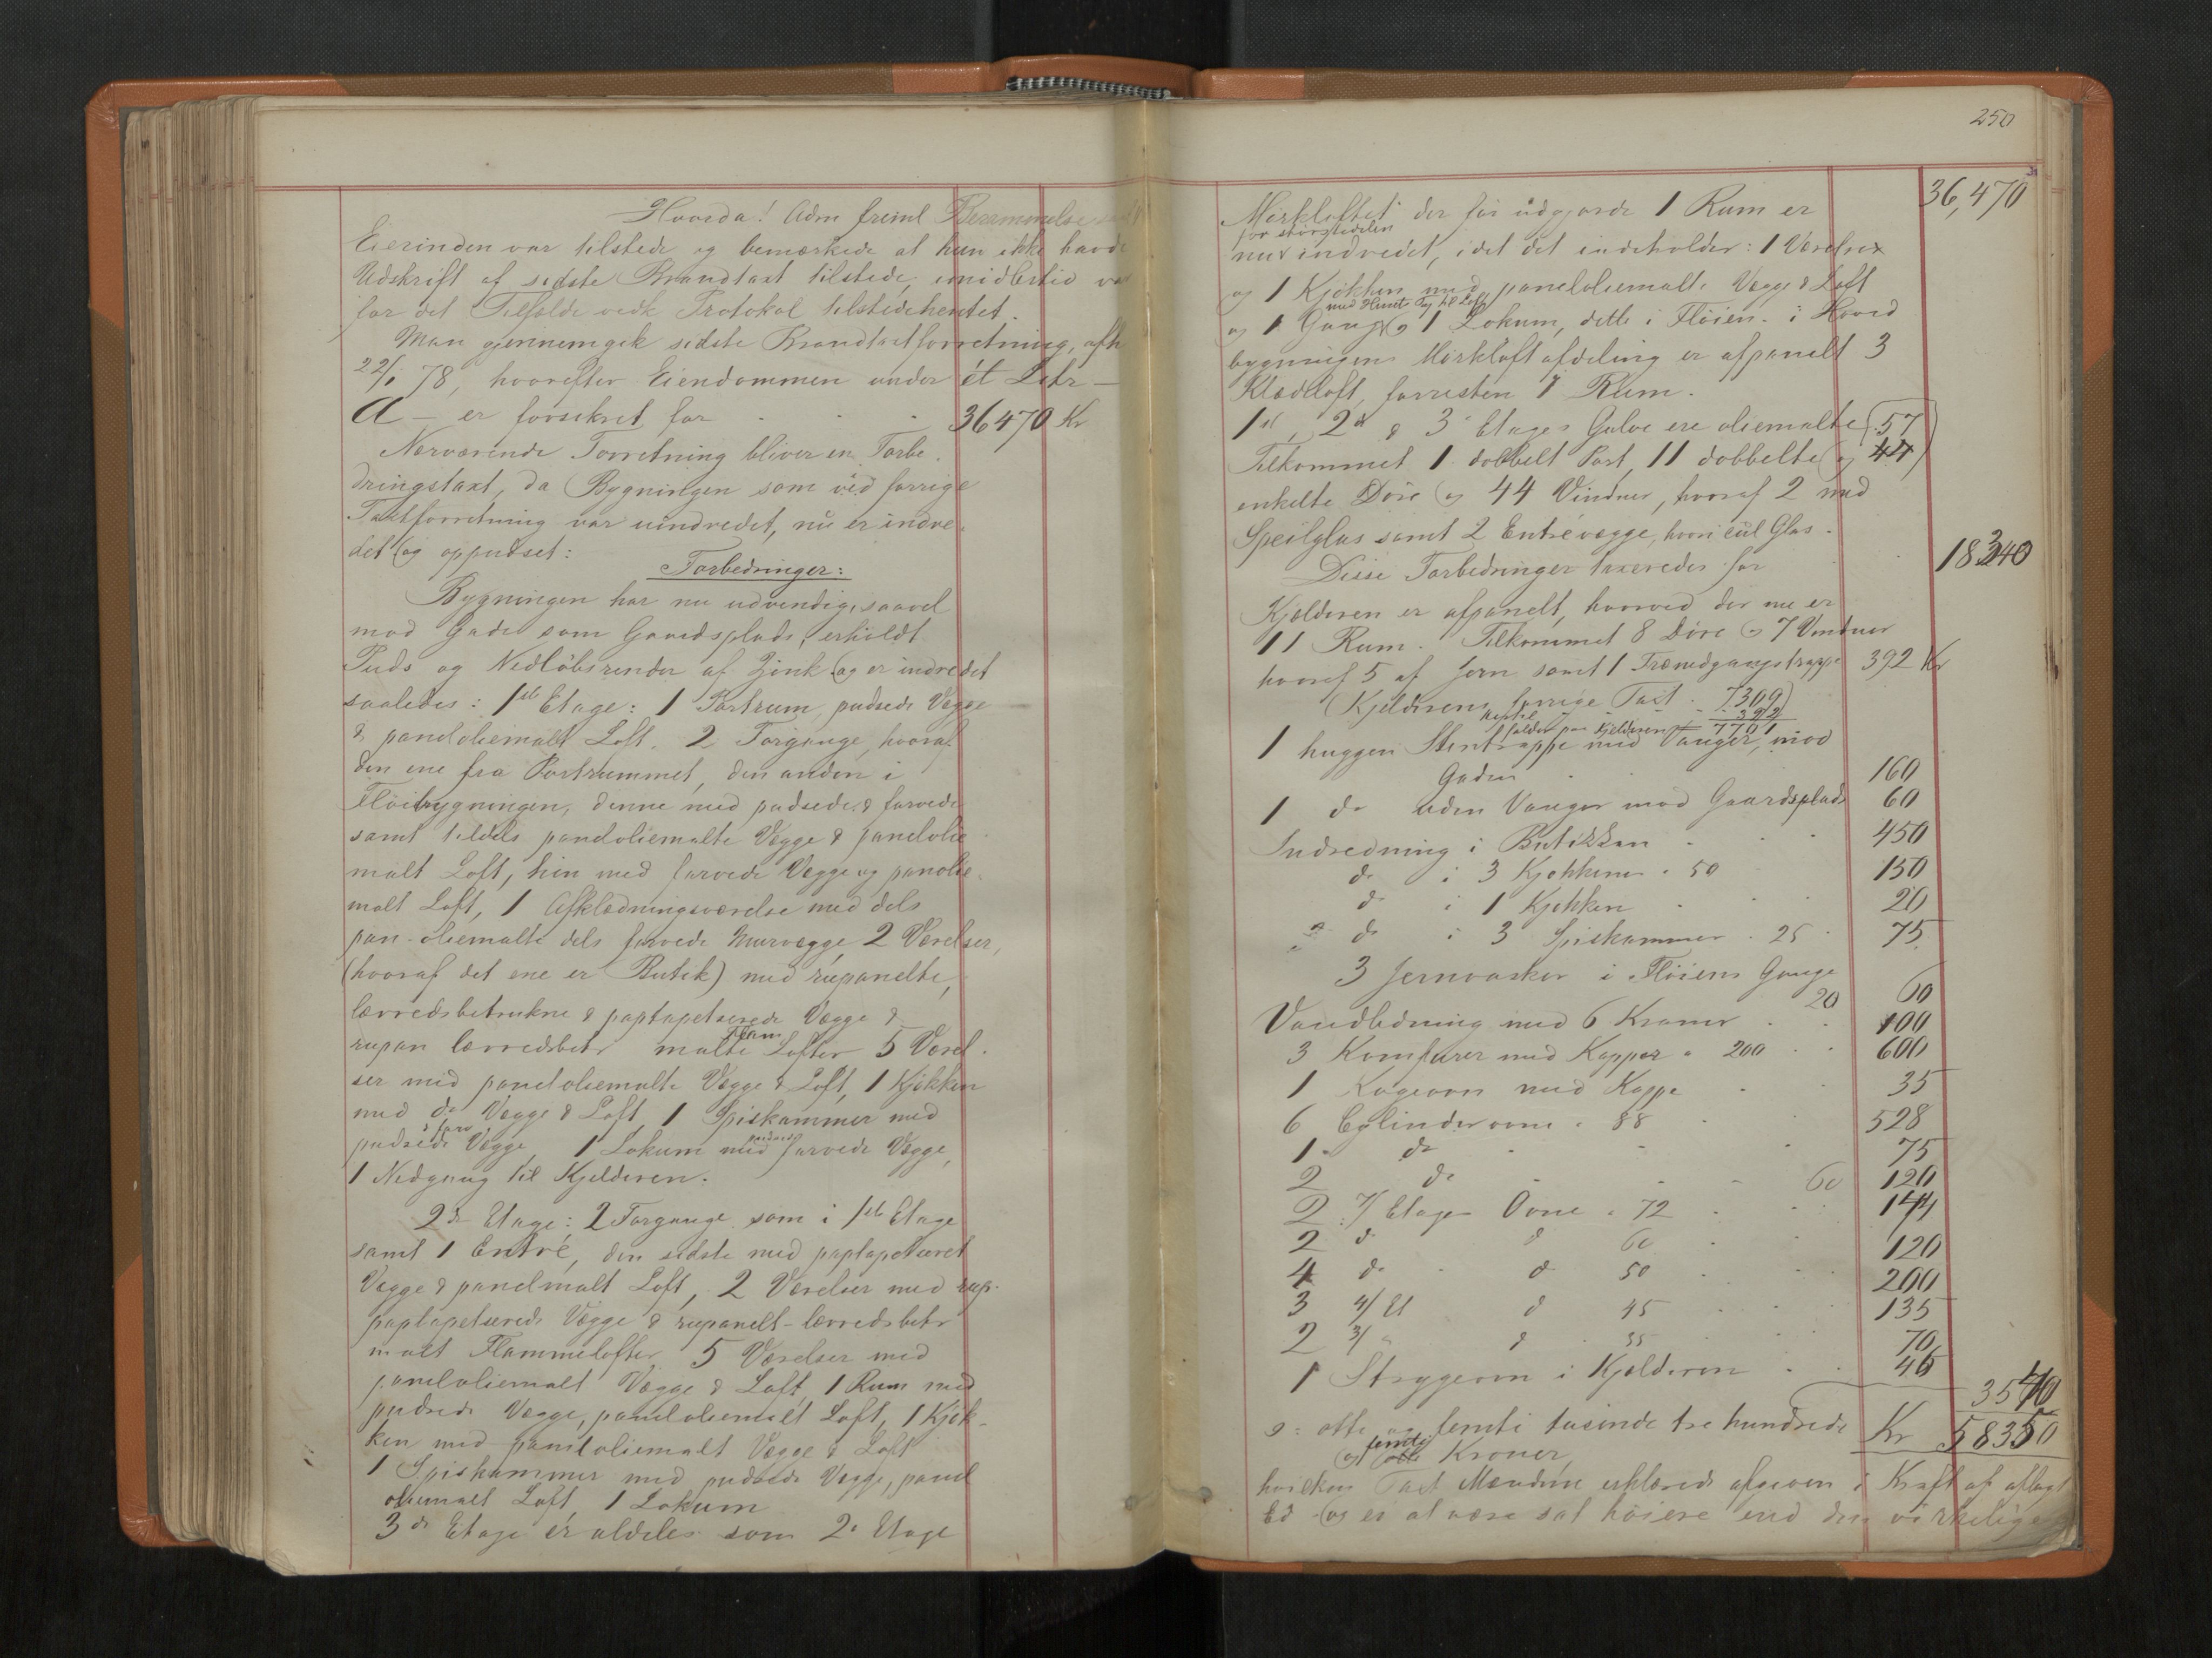 Hvorda! Adm freml Berammelse
Eierinden var tilstede og bemærkede at hun ikke havde
Udskrift af sidste Brandtaxt tilstede, imidlertid var
for det Tilfælde vedk Protokol tilstedehentet.
Man gjennemgik sidste Brandtaxtforretning, afh
22/1 78, hvorefter Eiendommen under ét Litr –
A – er forsikret for . . . 36470 Kr
Nærværende Forretning bliver en Forbe-
dringstaxt, da Bygningen som ved forrige
Taxtforretning var uindredet, nu er indre-
det og oppudset:
Forbedringer:
Bygningen har nu udvendig, saavel
mod Gade som Gaardsplads, erholdt
Puds og Nedløbsrender af Zink og er indredet
saaledes: 1ste Etage: 1 Portrum, pudsede Vægge
& paneloliemalt Loft. 2 Forgange, hvoraf
den ene fra Portrummet, den anden i
Fløibygningen, denne med pudsede & farvede
samt tildels paneloliemalte Vægge & panelolie
malt Loft, hin med farvede Vægge og panolie-
malt Loft, 1 Afklædningsværelse med dels
pan-oliemalte dels farvede Murvægge, 2 Værelser,
(hvoraf det ene er Butik) med rupanelte,
lærredsbetrukne & paptapetserede Vægge &
rupan lærredsbetr malte Flam Lofter 5 Værel-
ser med paneloliemalte Vægge & Loft, 1 Kjøkken
med do Vægge & Loft, 1 Spiskammer med
pudsede & farv Vægge, 1 Lokum med pudsede farvede Vægge,
1 Nedgang til Kjelderen.
2de Etage: 2 Forgange som i 1ste Etage
samt 1 Entré, den sidste med paptapetseret
Vægge & panelmalt Loft, 2 Værelser med rup-
paptapetserede Vægge & rupanelt-lærredsbetr
malt Flammelofter 5 Værelser med
paneloliemalt Vægge & Loft, 1 Rum med
pudsede Vægge, paneloliemalt Loft, 1 Kjøk-
ken med paneloliemalt Vægge & Loft
1 Spiskammer med pudsede Vægge, panel
oliemalt Loft, 1 Lokum
3de Etage er aldeles som 2. Etage
250
36,470
Mørkloftet der før udgjorde 1 Rum er
for størstedelen
nu indredet, idet det indeholder: 1 Værelse
og 1 Kjøkken med paneloliemalte Vægge & Loft
med Tag til Loft
og 1 Gang og 1 Lokum, dette i Fløien. i Hoved
bygningens Mørkloft afdeling er afpanelt 3
Klædeloft, forresten 1 Rum.
1st, 2de & 3 Etages Gulve ere oliemalte 57
Tilkommet 1 dobbelt Port, 11 dobbelte og 44
enkelte Døre og 44 Vinduer, hvoraf 2 med
Speilglas samt 2 Entrévægge, hvori Glas.
Disse Forbedringer taxeredes for 18340
Kjælderen er afpanelt, hvorved der nu er
11 Rum. Tilkommet 8 Døre og 7 Vinduer
hvoraf 5 af Jern samt 1 Trænedgangstrappe 392 Kr
(Kjelderens forrige Taxt . 7309)
392
falder paa Kjelderen 7701
1 huggen Stentrappe med Vanger, mod
Gaden . 160
1 do uden Vanger mod Gaardsplads 60
Indredning i Butikken . 450
do i 3 Kjøkkener a 50 150
do i 1 Kjøkken . 20
do i 3 Spiskammer . 25 . 75
3 Jernvasker i Fløiens Gange
20 60
Vandledning med 6 Kraner . . 100
3 Komfurer med Kapper a 200 . . 600
1 Kogeovn med Kappe . 35
6 Cylinderovne a 88 . 528
1 do . 75
2 do . 60 120
2 7/ Etages Ovne a 72 . 144
2 do d 60 . 120
4 do d 50 . 200
3 4/ Et d 45 . 135
2 3/ " d 35 . 70
1 Strygeovn i Kjælderen . . 46
3540
o: otte og femti tusinde tre hundrede Kr 58350
og femti Kroner,
hvilken Taxt Mændene erklærede afgiven i Kraft af aflagt
Ed og er at være sat høiere end den virkelige